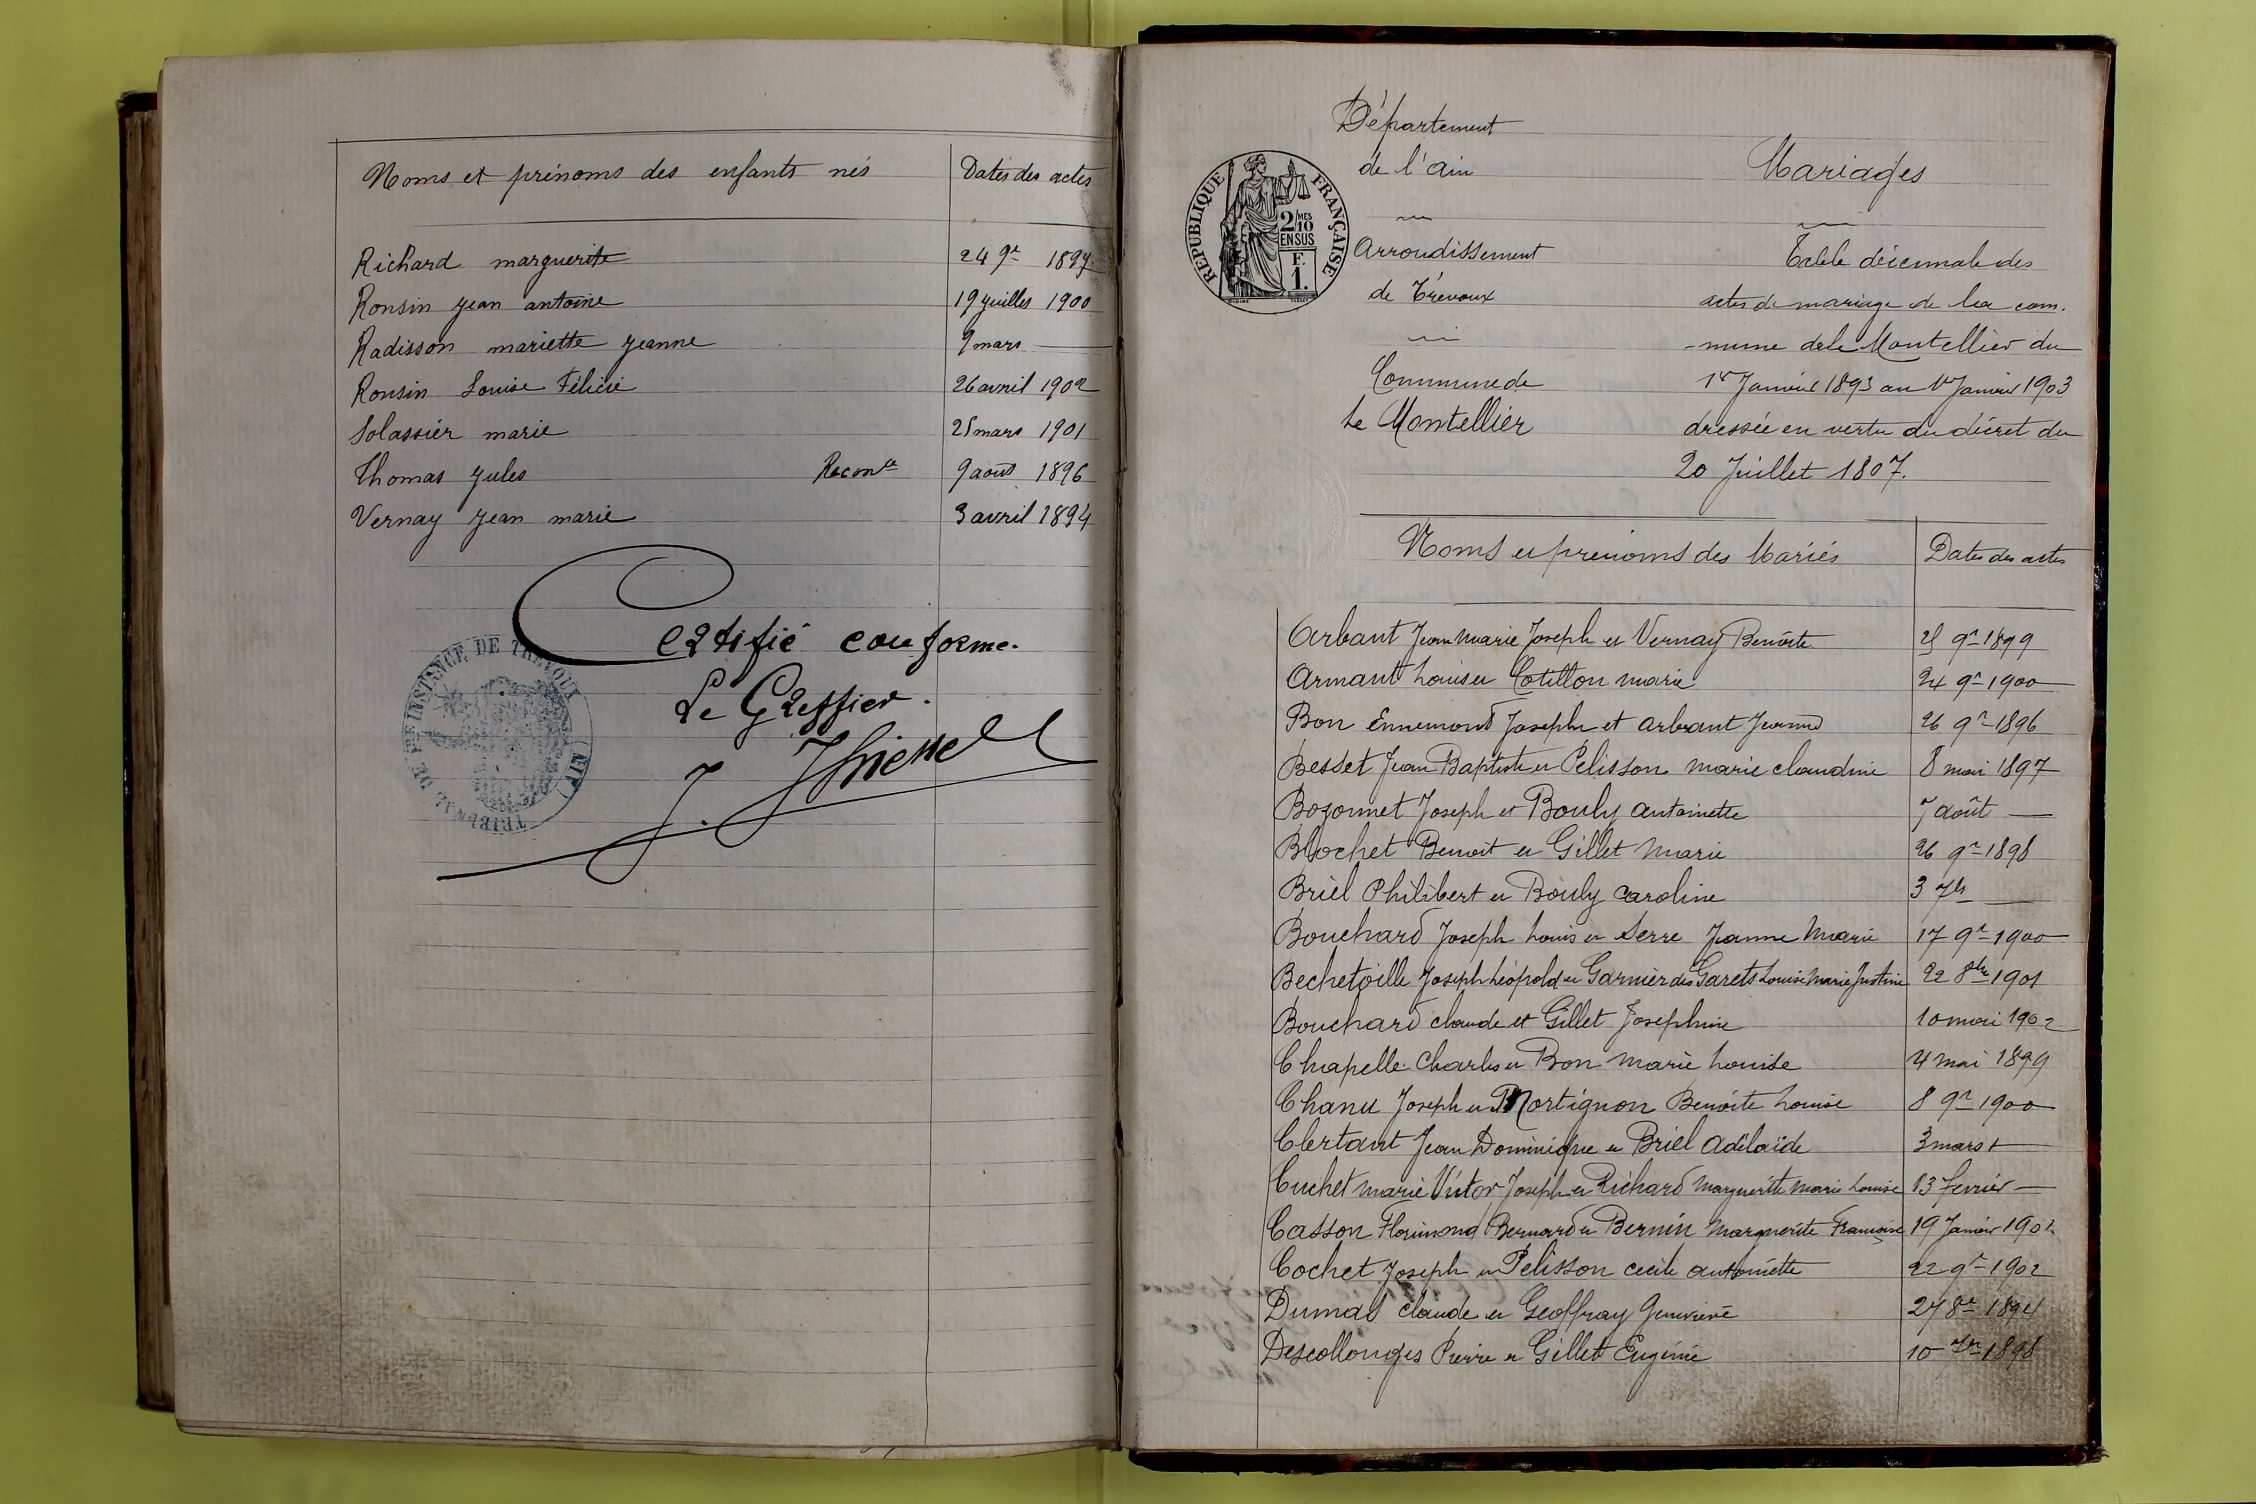 Noms et prénoms des enfants nés
Dates des actes
Richard marguerite
24 9re 1897
Ronsin Jean antoine
19 juillet 1900
Radisson mariette Jeanne
9 mars —
Ronsin Louise Félicie
26 avril 1902
Solassier marie
25 mars 1901
Thomas Jules Reconce
9 août 1896
Vernay Jean marie
3 avril 1894
Certifié conforme.
Le Greffier.
TRIBUNAL DE 1RE INSTANCE DE TREVOUX (AIN)
Département
de l'ain
Arrondissement
de Trévoux
Commune de
Le Montellier
RÉPUBLIQUE FRANÇAISE
2/10MES
EN SUS
F.
1.
Mariages
Table décennale des
actes de mariage de la com.
-mune de le Montellier du
1er Janvier 1893 au 1er Janvier 1903
dressée en vertu du décret du
20 Juillet 1807.
Noms et prénoms des Mariés
Dates des actes
Arbant Jean Marie Joseph et Vernay Benoite
25 9re 1899
Armant Louis et Cotillon marie
24 9re 1900
Bon Ennemond Joseph et Arbant Jeanne
26 9re 1896
Besset Jean Baptiste et Pelisson marie claudine
8 mai 1897
Bozonnet Joseph et Bouly antoinette
7 août —
Blochet Benoit et Gillet Marie
26 9re 1898
Briel Philibert et Bouly Caroline
3 7bre —
Bouchard Joseph Louis et Serre Jeanne Marie
17 9re 1900
Bechetoille Joseph Léopold et Garnier des Garets Louise Marie Justine
22 8bre 1901
Bouchard claude et Gillet Josephine
10 mai 1902
Chapelle Charles et Bon marie Louise
4 mai 1899
Chanu Joseph et Mortignon Benoite Louise
8 9re 1900
Clertant Jean Dominique et Briel Adélaïde
3 mars —
Cuchet marie Victor Joseph et Richard Marguerite Marie Louise
13 fevrier —
Casson Florimond Bernard et Bernin Marguerite Françoise
19 Janvier
Cochet Joseph et Pelisson Cecile antoinette
22 9re 1902
Dumas claude et Geoffray Genevieve
27 8re 1894
Descollonges Pierre et Gillet Eugénie
10 7bre 1898